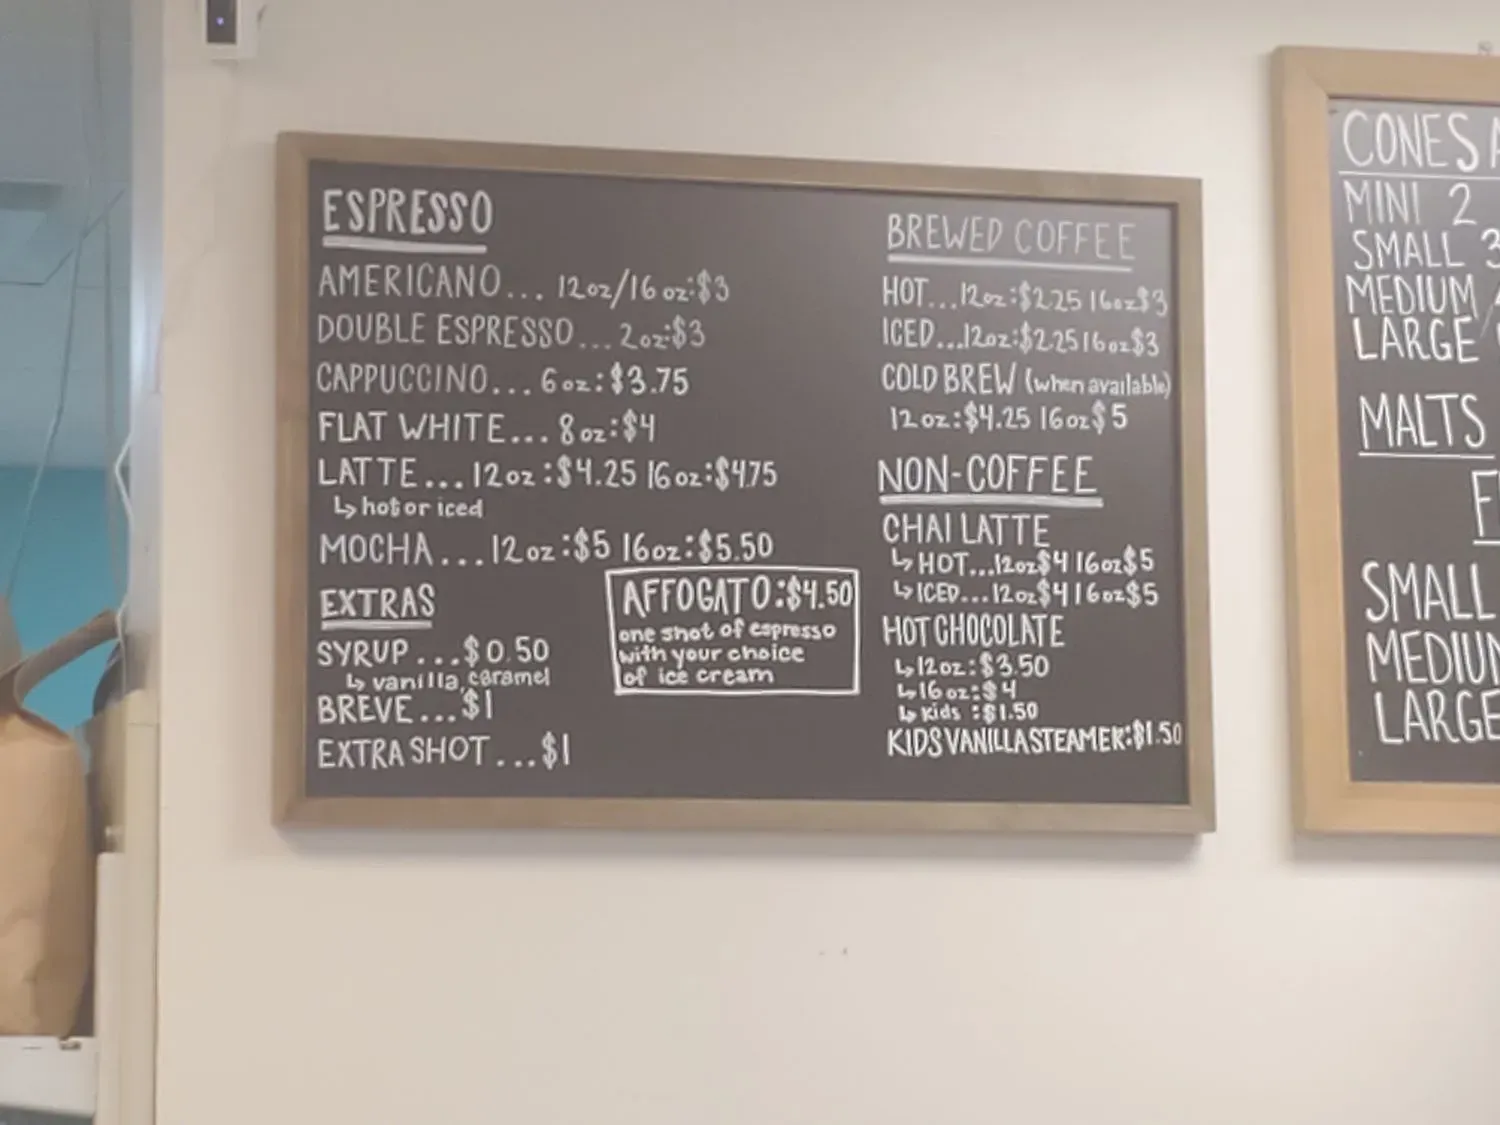 ESPRESSO
AMERICANO... 12oz/16oz:$3
DOUBLE ESPRESSO... 2oz:$3
CAPPUCCINO... 6oz:$3.75
FLAT WHITE... 8oz:$4
LATTE... 12oz:$4.25 16oz:$4.75
↳ hot or iced
MOCHA... 12oz:$5 16oz:$5.50
EXTRAS
SYRUP...$0.50
↳ vanilla, caramel
BREVE...$1
EXTRA SHOT...$1
AFFOGATO:$4.50
one shot of espresso
with your choice
of ice cream
BREWED COFFEE
HOT...12oz:$2.25 16oz$3
ICED...12oz:$2.25 16oz$3
COLD BREW (when available)
12oz:$4.25 16oz$5
NON-COFFEE
CHAI LATTE
↳ HOT...12oz$4 16oz$5
↳ ICED...12oz$4 16oz$5
HOT CHOCOLATE
↳ 12oz:$3.50
↳ 16oz:$4
↳ kids :$1.50
KIDS VANILLA STEAMER:$1.50
CONES
MINI 2
SMALL 3
MEDIUM
LARGE
MALTS
SMALL
MEDIUM
LARGE